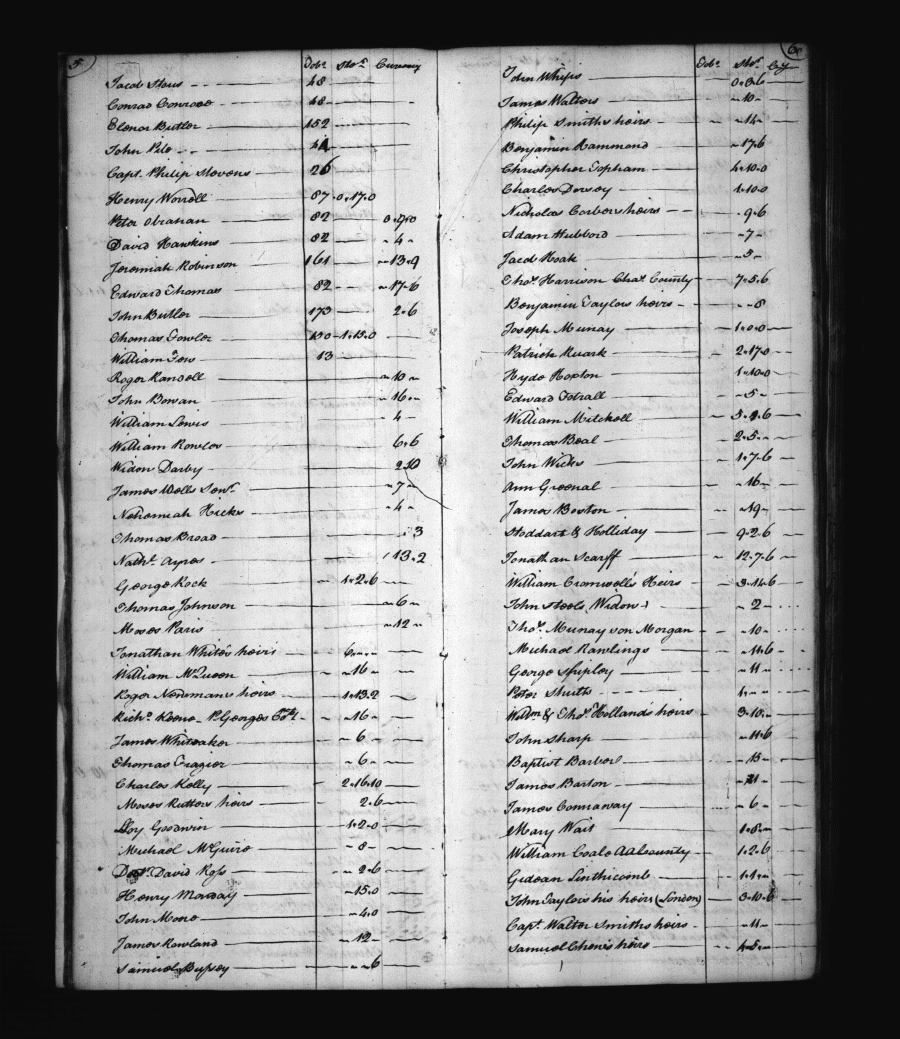 5
Tobo. Sterg. Currency
Jacob Stous - - - 48
Conrad Conrode 48
Elenor Butler 152
John Pile - - 41
Capt. Philip Stevens 26
Henry Worrell 87 - 0.17.0
Peter Obrahan 82
David Hawkins 82 " 4 "
Jeremiah Robinson 161 " 13.9
Edward Thomas 82 " 17.6
John Butler 173 2.6
Thomas Fowler 130 - 1.13.0
William Few 13
Roger Randell " 10 "
John Bowan " 16 "
William Lewis " 4 "
William Rowles 6.6
Widow Darby
James Wells Senr. " 7 "
Nehemiah Hicks " 4 "
Thomas Broad 3
Nathl. Ayres 13.2
George Rock " 1.2.6
Thomas Johnson " 6 "
Moses Paris " 12 "
Jonathan White's heirs 6 " "
William McQueen " 16 "
Roger Newmans heirs 1.13.2
Richd. Keene - P. Georges Coty. " 16 "
James Whiteaker " 6 "
Thomas Cragier " 6 "
Charles Kelly 2.16.10
Moses Rutters heirs 2.6
Loy Goodwin 1.2.0
Michael McGuire " 8 "
Doctr. David Ross " 2.6
Henry " 15.0
John Mone " 4.0
James Rowland " 12 "
Samuel Bussey " " 6
6
Tobo. Sterg. Cy
John Whips 0.3.6
James Walters " 10 "
Philip Smiths heirs " 14 "
Benjamin Hammond " 17.6
Christopher Topham 4.10.0
Charles Dorsey 1.10.0
Nicholas heirs " 9.6
Adam Hubbord " 7 "
Jacob Hoak " 5 "
Thos. Harrison Chas. County 7.5.6
Benjamin Taylors heirs " " 8
Joseph Munay 1.0.0
Patrick Ruark 2.17.0
Hyde Hoxton 1.10.0
Edward " 5 "
William Mitchell
Thomas Beal 2.5 "
John Wicks 1.7.6
Ann Greenal " 16 "
James Boston " 19 "
Stoddart & Holliday 9.2.6
Jonathan Scarff 12.7.6
William Cromwell's Heirs 3.14.6
John Steels, Widow " 2 "
Thos. Munay son Morgan " 10 "
Michael Rawlings " 11.6
George Shipley " 11 "
Peter Shuts 1 " "
Willm. & Thos. Hollands heirs 3.10 "
John Sharp " 11.6
Baptist Barber " 15 "
James Barton
James Connaway " 6 "
Mary Wait 1.8 "
William Coale AA County 1.2.6
Gideon Linthicomb 1.1 "
John Taylors his heirs (London) 3.10.6
Capt. Walter Smiths heirs " 11 "
Samuel Chews heirs 4.5 "